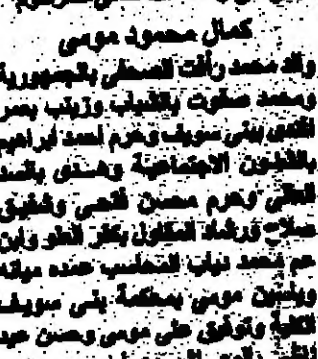 كمال محمود موسى
والد محمد رأفت الصحفى بالجمهورية
ومحمد صفوت بالشباب وزينب بمصر
ببنى سويف وحرم احمد ابراهيم
بالشئون الاجتماعية وهدى بالسد
العالى وحرم محسن فتحى وشقيق
صلاح ورشاد المقاول بكفر العلو وابن
عم محمد دياب المحاسب عمده ميانه
وياسين موسى بمحكمة بنى سويف
الكلية وتوفيق على موسى وحسن عبد